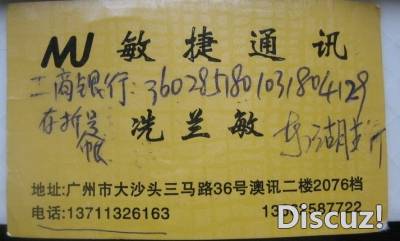 MJ 敏捷通讯
工商银行: 3602851801031804129
存折号
帐
冼兰敏
地址:广州市大沙头三马路36号澳讯二楼2076档
电话:13711326163
Discuz!